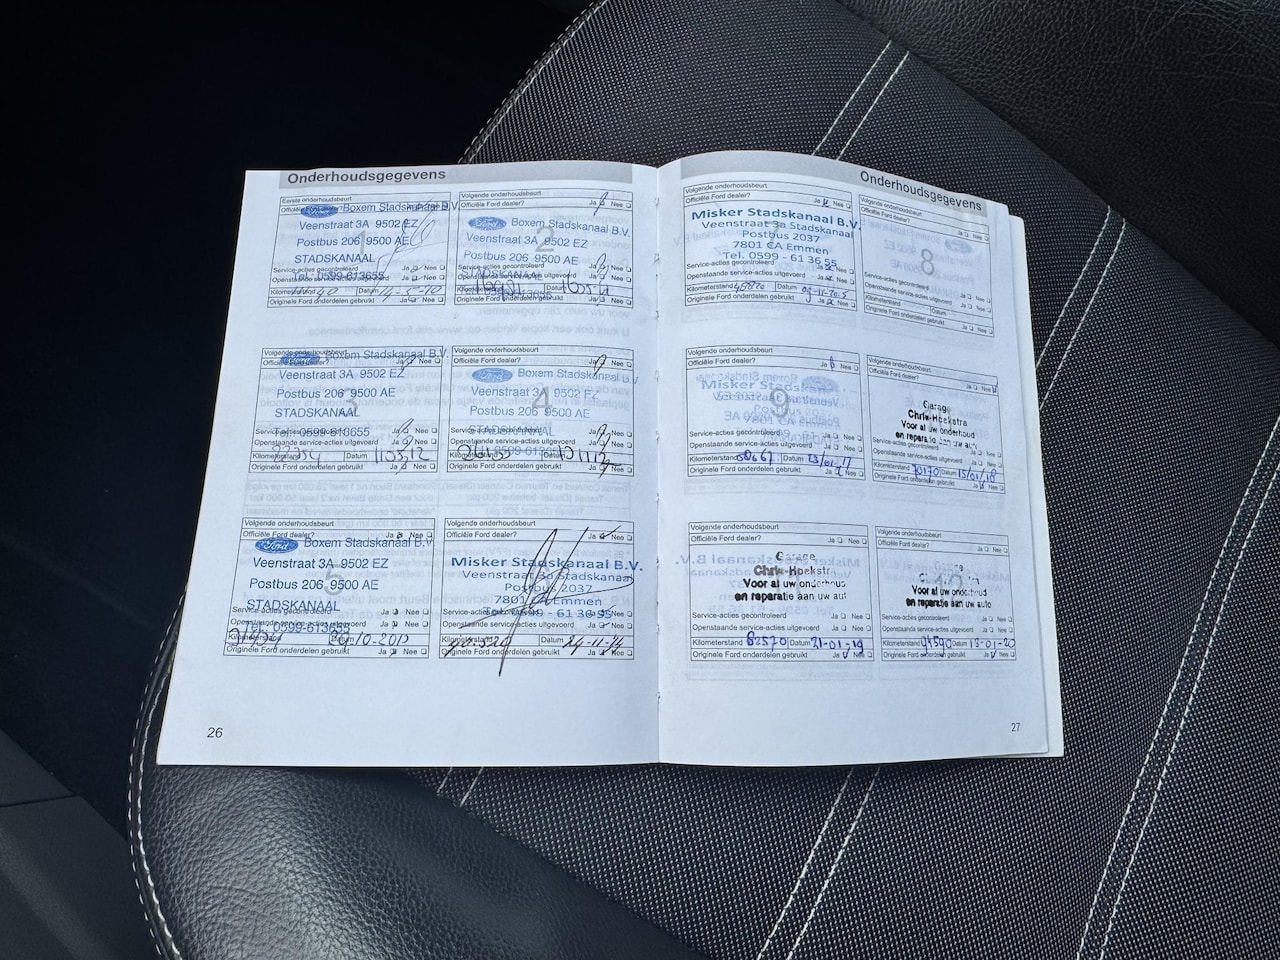 Onderhoudsgegevens
Eerste onderhoudsbeurt
Ford Boxem Stadskanaal B.V.
Veenstraat 3A 9502 EZ
Postbus 206 9500 AE
STADSKANAAL
Service-acties gecontroleerd Ja Nee
Tel. 0599-613655
Openstaande service-acties uitgevoerd Ja Nee
Datum
Originele Ford onderdelen gebruikt Ja Nee
Volgende onderhoudsbeurt
Officiële Ford dealer? Ja Nee
2
Ford Boxem Stadskanaal B.V.
Veenstraat 3A 9502 EZ
Postbus 206 9500 AE
STADSKANAAL
Service-acties gecontroleerd Ja Nee
Openstaande service-acties uitgevoerd Ja Nee
Originele Ford onderdelen gebruikt Ja Nee
Volgende onderhoudsbeurt
Ford Boxem Stadskanaal B.V.
Veenstraat 3A 9502 EZ
Postbus 206 9500 AE
3
STADSKANAAL
Tel. 0599-613655
Openstaande service-acties uitgevoerd Ja Nee
Kilometerstand Datum
Originele Ford onderdelen gebruikt Ja Nee
Volgende onderhoudsbeurt
Officiële Ford dealer? Ja Nee
Ford Boxem Stadskanaal B.V.
Veenstraat 3A 9502 EZ
4
Postbus 206 9500 AE
STADSKANAAL
Openstaande service-acties uitgevoerd Ja Nee
Originele Ford onderdelen gebruikt Ja Nee
Volgende onderhoudsbeurt
Officiële Ford dealer? Ja Nee
Ford Boxem Stadskanaal B.V.
Veenstraat 3A 9502 EZ
5
Postbus 206 9500 AE
STADSKANAAL
Tel. 0599-613655
Kilometerstand Datum
Originele Ford onderdelen gebruikt Ja Nee
Volgende onderhoudsbeurt
Officiële Ford dealer? Ja Nee
Misker Stadskanaal B.V.
Veenstraat 3a Stadskanaal
Postbus 2037
7801 CA Emmen
Tel. 0599 - 61 36 55
Openstaande service-acties uitgevoerd Ja Nee
Kilometerstand Datum 24-11-14
Originele Ford onderdelen gebruikt Ja Nee
26
Onderhoudsgegevens
Volgende onderhoudsbeurt
Officiële Ford dealer? Ja Nee
Misker Stadskanaal B.V.
Veenstraat 3a Stadskanaal
Postbus 2037
7801 CA Emmen
Tel. 0599 - 61 36 55
Service-acties gecontroleerd Ja Nee
Openstaande service-acties uitgevoerd Ja Nee
Kilometerstand Datum
Originele Ford onderdelen gebruikt Ja Nee
Volgende onderhoudsbeurt
Officiële Ford dealer? Ja Nee
8
Service-acties gecontroleerd Ja Nee
Openstaande service-acties uitgevoerd Ja Nee
Kilometerstand Datum
Originele Ford onderdelen gebruikt Ja Nee
Volgende onderhoudsbeurt
Officiële Ford dealer? Ja Nee
Misker Stadskanaal
9
Service-acties gecontroleerd Ja Nee
Openstaande service-acties uitgevoerd Ja Nee
Kilometerstand 50667 Datum 23/01-17
Originele Ford onderdelen gebruikt Ja Nee
Volgende onderhoudsbeurt
Officiële Ford dealer? Ja Nee
Garage
Chris Hoekstra
Voor al uw onderhoud
en reparatie aan uw auto
Openstaande service-acties uitgevoerd Ja Nee
Kilometerstand 70170 Datum 15/01/18
Originele Ford onderdelen gebruikt Ja Nee
Volgende onderhoudsbeurt
Officiële Ford dealer? Ja Nee
Garage
Chris Hoekstra
Voor al uw onderhoud
en reparatie aan uw aut
Service-acties gecontroleerd Ja Nee
Openstaande service-acties uitgevoerd Ja Nee
Kilometerstand 82570 Datum 21-01-19
Originele Ford onderdelen gebruikt Ja Nee
Volgende onderhoudsbeurt
Officiële Ford dealer? Ja Nee
Voor al uw onderhoud
en reparatie aan uw auto
Service-acties gecontroleerd Ja Nee
Openstaande service-acties uitgevoerd Ja Nee
Kilometerstand 94590 Datum 13-01-20
Originele Ford onderdelen gebruikt Ja Nee
27